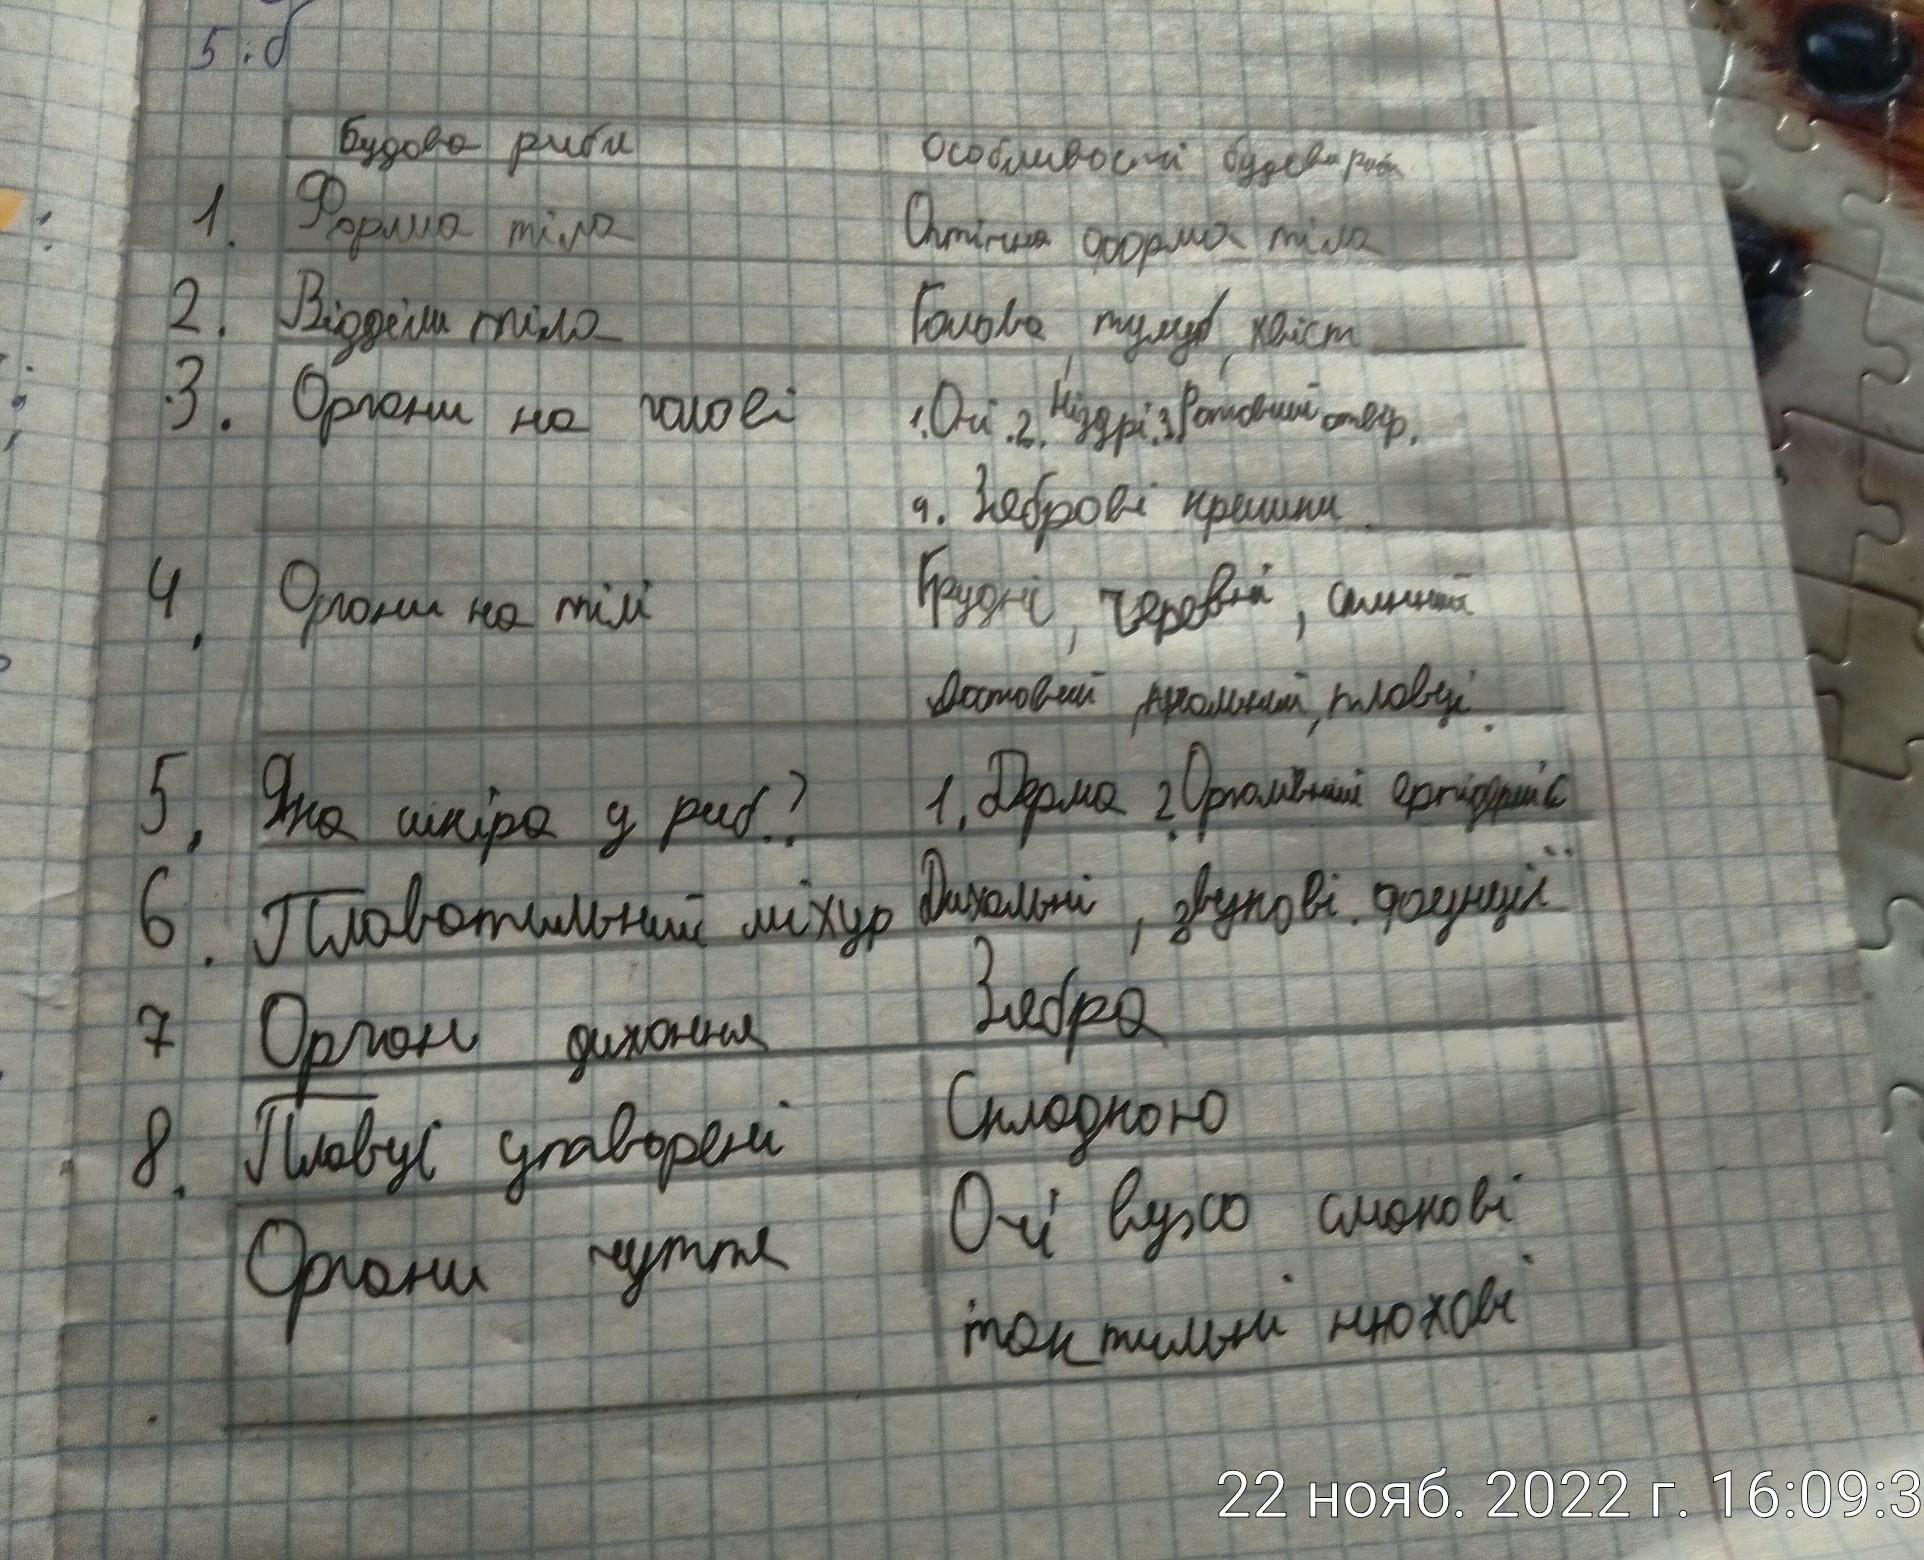 5.б
Будова риби Особливості будови риби
1. Форма тіла Оптічна форма тіла
2. Відділи тіла Голова, тулуб, хвіст
3. Органи на голові 1. Очі. 2. Ніздрі. 3. Ротовий отвір.
4. Зяброві кришки
4. Органи на тілі Грудні, черевні, спинний
хвостовий, анальний, плавці.
5. Яка шкіра у риб? 1. Дерма 2.
6. Плавательний міхур Дихальні, звукові. функції
7 Орган дихання Зябра
8. Плавці утворені Складкою
Органи чуття Очі вухо смакові
тактильні нюхові
22 нояб. 2022 г. 16:09:3